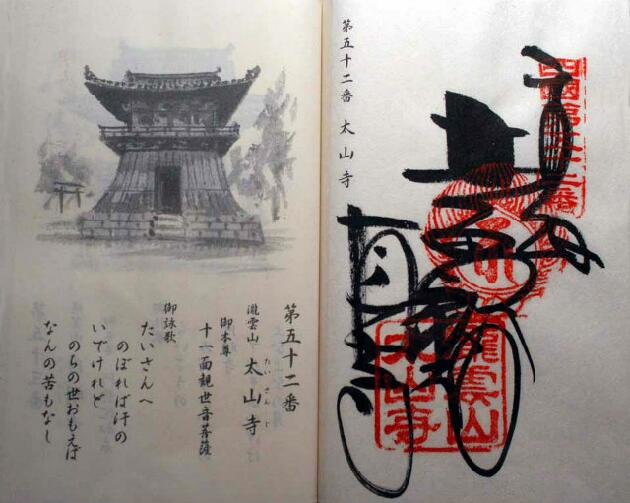 第五十二番
太山寺
第五十二番
瀧雲山 太山寺
たいさんじ
御本尊
十一面観世音菩薩
御詠歌
たいさんへ
のぼれば汗の
いでけれど
のちの世おもえば
なんの苦もなし
四國第五十二番
瀧雲山
太山寺